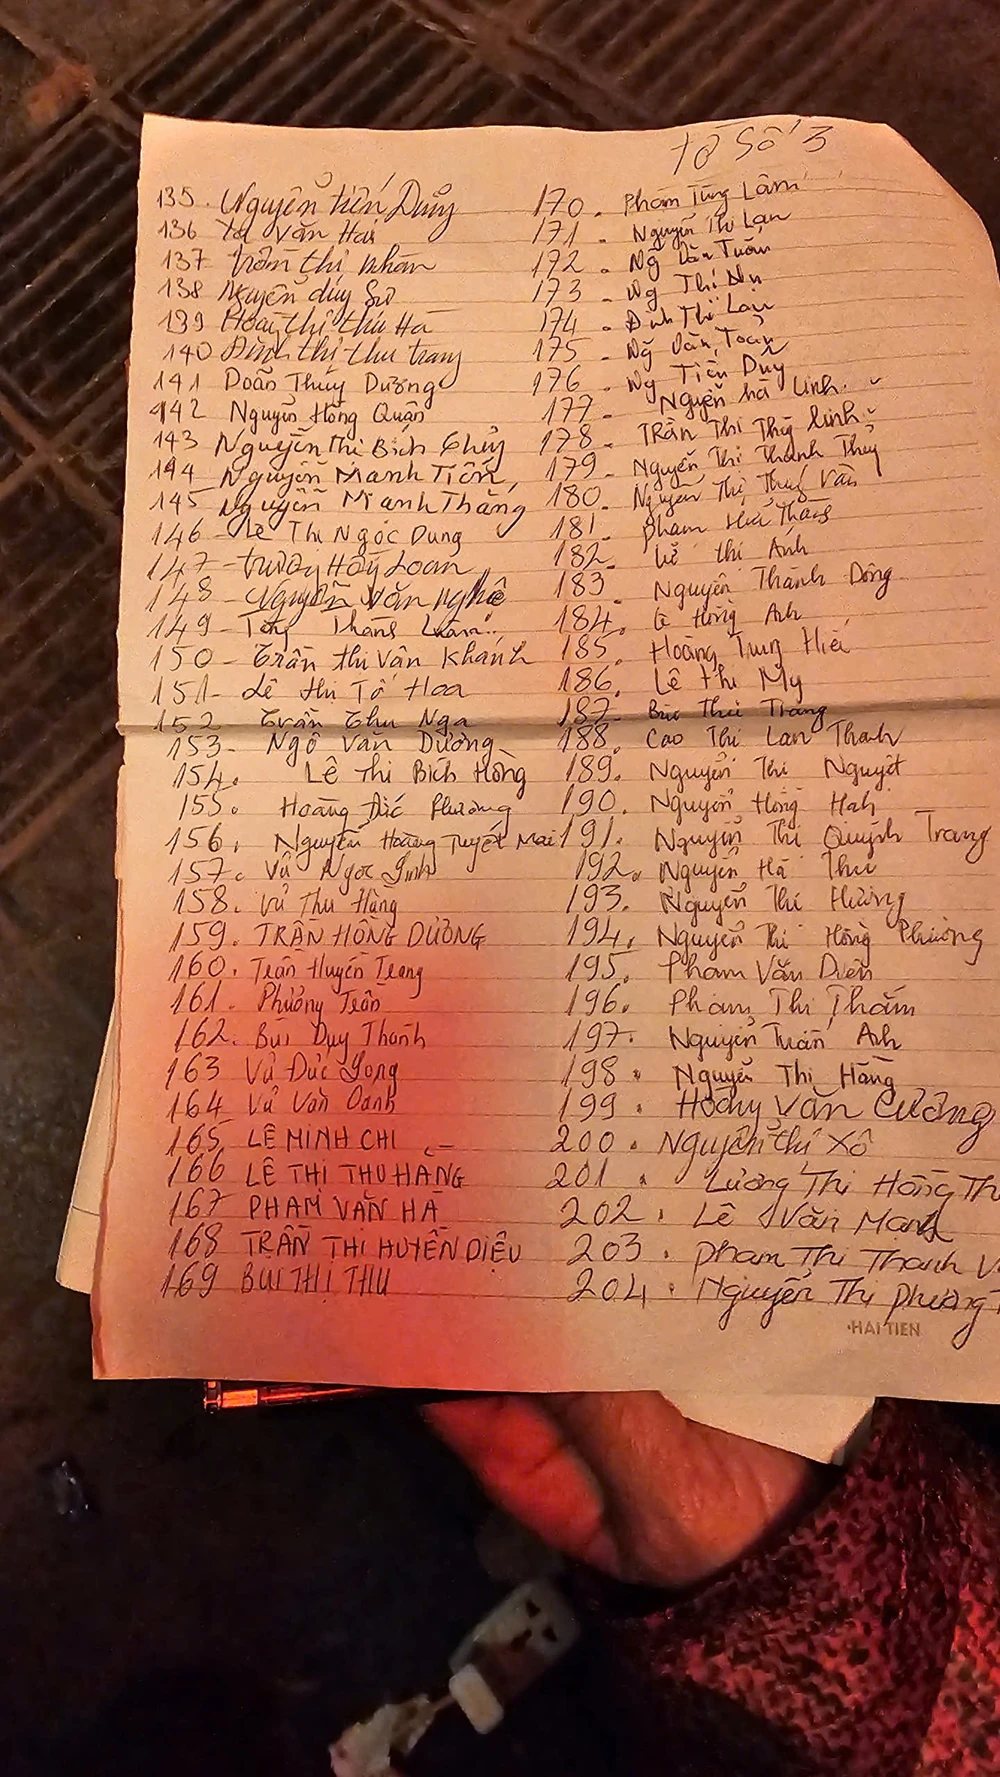 Tờ số 3
135. Nguyễn Tiến Dũng
136 Văn Hải
137 Trần thị Nhàn
138 Nguyễn duy Sử
139 Hoàng thị thu Hà
140 Đinh thị thu trang
141 Doãn Thúy Dương
142 Nguyễn Hồng Quân
143 Nguyễn Thị Bích Thủy
144 Nguyễn Mạnh Tiến
145 Nguyễn Mạnh Thắng
146 - Lê Thị Ngọc Dung
147 - Loan
148 - Nguyễn văn nghệ
149 -
150 - Trần thị Vân Khánh
151 - Lê thị Tố Hoa
152 Trần Thu Nga
153 - Ngô Văn Dương
154. Lê Thị Bích Hồng
155. Hoàng Đức Phương
156. Nguyễn Hoàng Tuyết Mai
157. Vũ Ngọc Linh
158. Vũ Thu Hằng
159. TRẦN HỒNG DƯƠNG
160. Trần Huyền Trang
161. Phương Trần
162. Bùi Duy Thanh
163 Vũ Đức Long
164 Vũ Văn Oanh
165 LÊ MINH CHI
166 LÊ THỊ THU HẰNG
167 PHẠM VĂN HÀ
168 TRẦN THỊ HUYỀN DIỆU
169 BÙI THỊ THU
170. Phạm Tùng Lâm
171. Nguyễn Thị Lan
172. Ng Văn Tuấn
173. Ng Thị
174. Đinh Thị Lan
175. Ng Văn Toàn
176. Ng Tiến Duy
177. Nguyễn hà Linh.
178. Trần Thị Thùy linh
179. Nguyễn Thị Thanh Thủy
180. Nguyễn Thị Thuý Vân
181. Phạm Thắng
182. thị Ánh
183 Nguyễn Thành Đông
184. Lê Hồng Anh
185. Hoàng Trung Hiếu
186. Lê thị My
187. Bùi Thu Trang
188. Cao Thị Lan Thanh
189. Nguyễn Thị Nguyệt
190. Nguyễn Hồng Hạnh
191. Nguyễn Thị Quỳnh Trang
192. Nguyễn Hà Thu
193. Nguyễn Thị Hương
194. Nguyễn Thị Hồng Phương
195. Phạm Văn Diên
196. Phạm Thị Thắm
197. Nguyễn Tuấn Anh
198. Nguyễn Thị Hằng
199. Hoàng Văn Cường
200. Nguyễn thị Xô
201. Lương Thị Hồng Th
202. Lê Văn Mạnh
203. Phạm Thị Thanh V
204. Nguyễn Thị Phương T
HẢI TIẾN